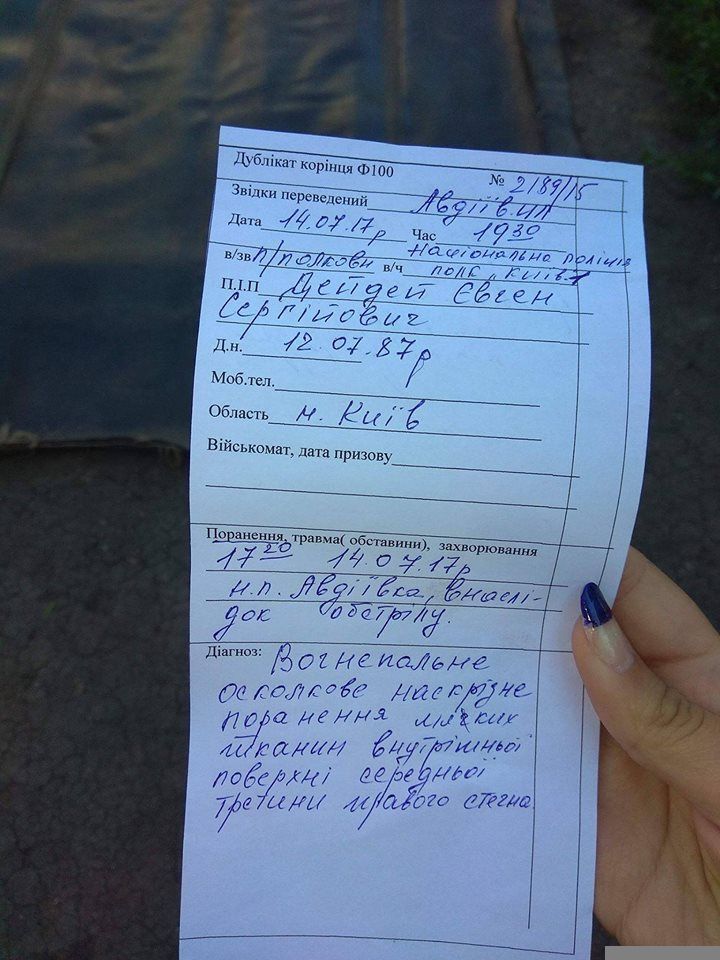 Дублікат корінця Ф100
№ 2189/15
Звідки переведений Авдіїв.ЦЛ
Дата 14.07.17р Час 19 30
Національна поліція
в/зв П/полковн в/ч полк "Київ"
П.І.П Дейдей Євген
Сергійович
Д.н. 12.07.87р
Моб.тел.
Область м. Київ
Військомат, дата призову
Поранення, травма( обставини), захворювання
17 20 14.07.17р
н.п. Авдіївка, внаслі-
док обстрілу.
Діагноз: Вогнепальне
осколкове наскрізне
поранення мягких
тканин внутрішньої
поверхні середньої
третини правого стегна.